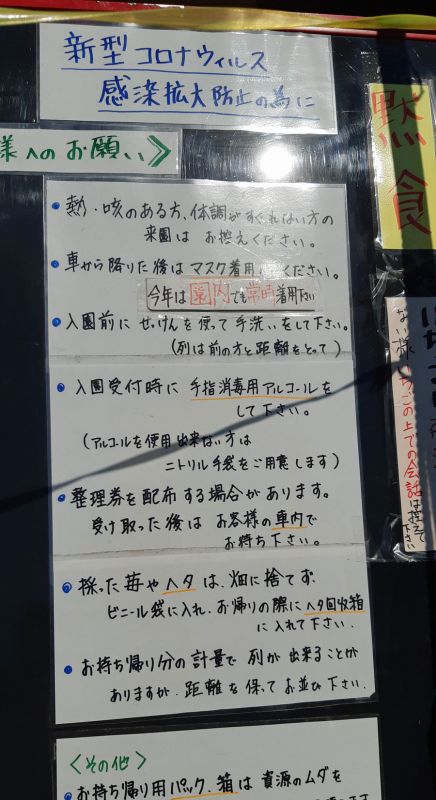 新型コロナウィルス
感染拡大防止の為に
様へのお願い》
・熱・咳のある方、体調がすぐれない方の
来園は お控えください。
・車から降りた後は マスク着用 ください。
今年は園内でも常時着用下さい
・入園前に せっけんを使って手洗いをして下さい。
(列は前の方と距離をとって)
・入園受付時に 手指消毒用アルコールを
して下さい。
(アルコールを使用出来ない方は
ニトリル手袋をご用意します)
・整理券を配布する場合があります。
受け取った後は お客様の車内で
お待ち下さい。
・採った苺やヘタは、畑に捨てず
ビニール袋に入れ、お帰りの際にヘタ回収箱
に入れて下さい.
・お持ち帰り分の計量で列が出来ることが
ありますが、距離を保ってお並び下さい.
<その他>
・お持ち帰り用パック、箱は資源のムダを
黙食
いちごの上での会話は控えて
下さい